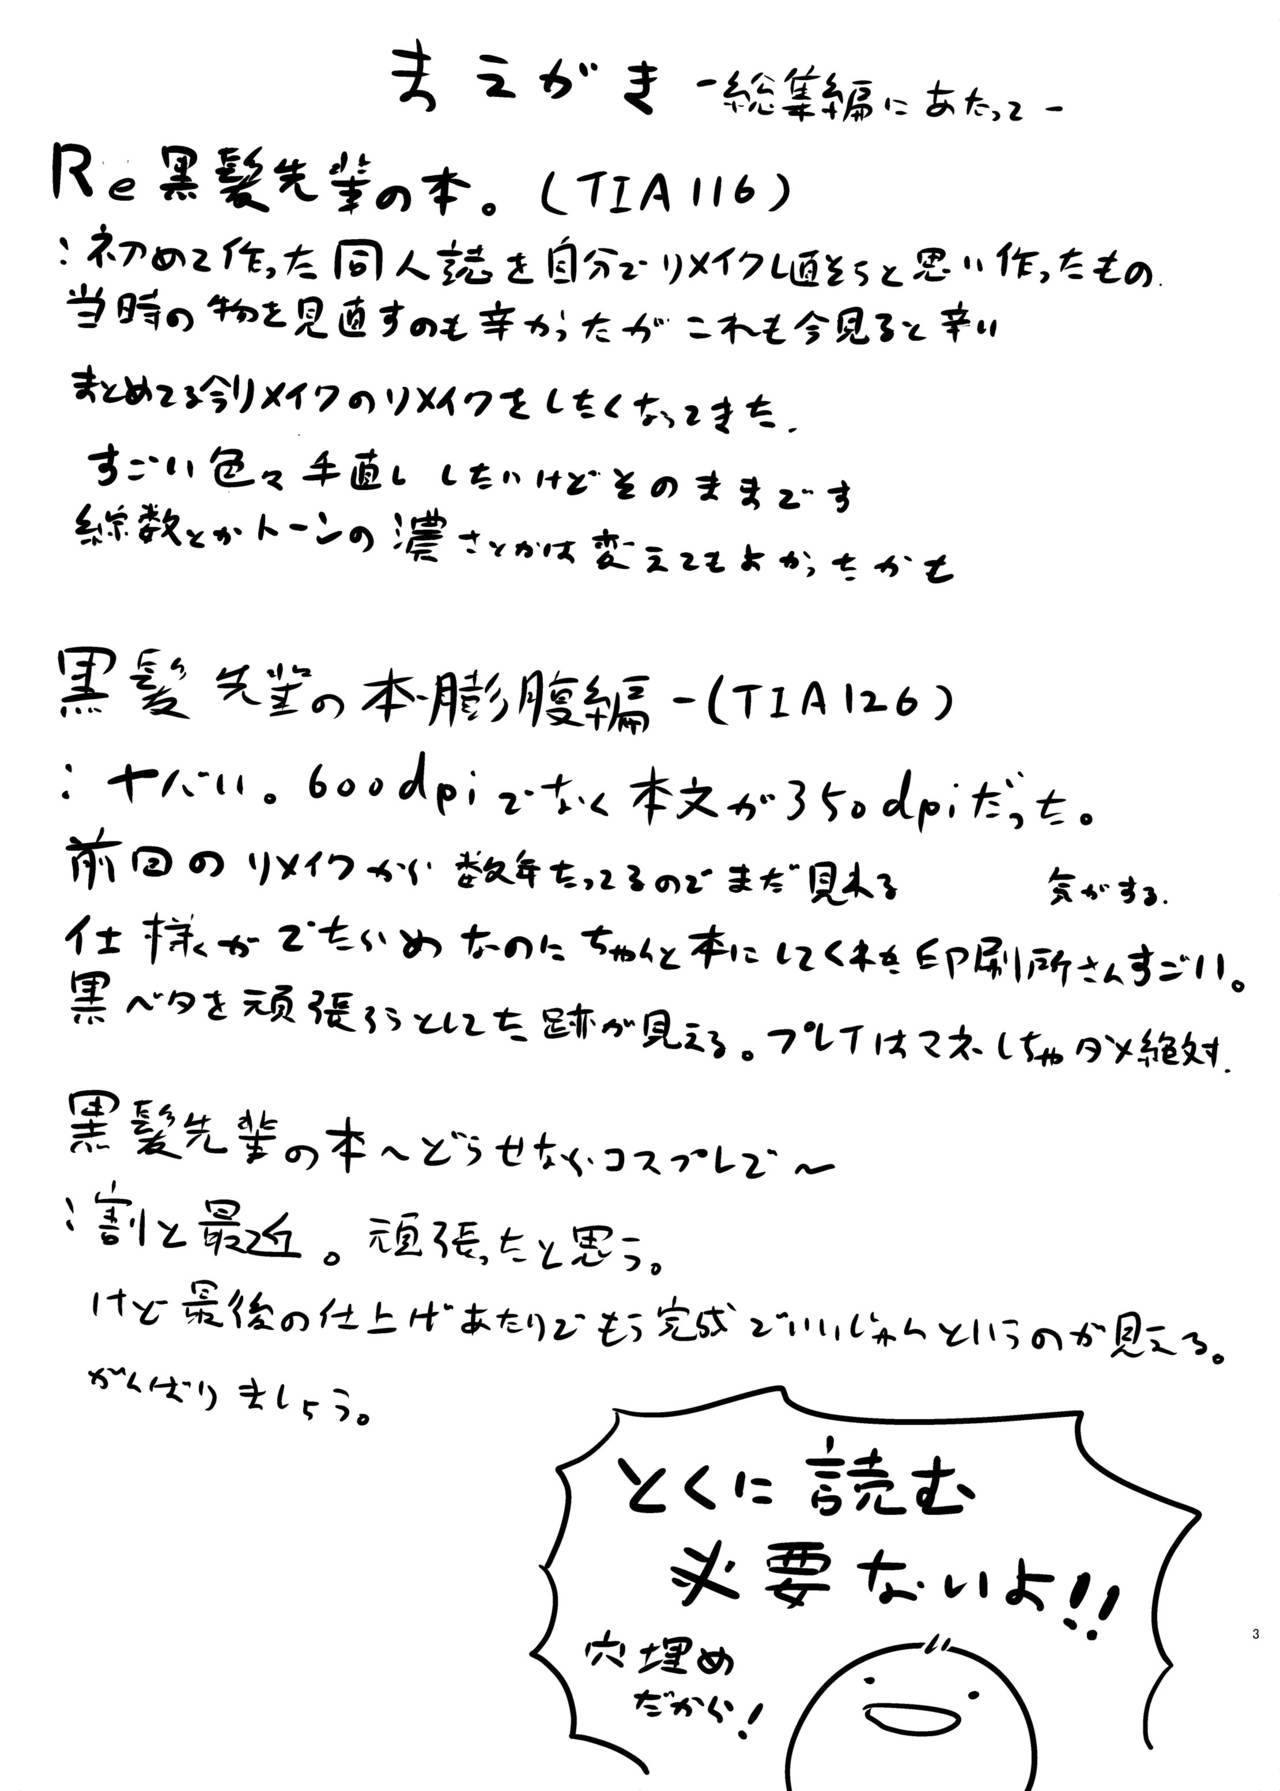 まえがき -総集編にあたって-
Re黒髪先輩の本。(TIA116)
:初めて作った同人誌を自分でリメイクし直そうと思い作ったもの.
当時の物を見直すのも辛かったがこれも今見ると辛い
まとめてる今リメイクのリメイクをしたくなってきた.
すごい色々手直ししたいけどそのままです
線数とかトーンの濃さとかは変えてもよかったかも
黒髪先輩の本-膨腹編-(TIA126)
:ヤバい。600dpiでなく本文が350dpiだった。
前回のリメイクから数年たってるのでまだ見れる 気がする.
仕様がでたらめなのにちゃんと本にしてくれた印刷所さんすごい。
黒ベタを頑張ろうとしてた跡が見える。プレイはマネしちゃダメ絶対.
黒髪先輩の本~どうせならコスプレで~
:割と最近。頑張ったと思う。
けど最後の仕上げあたりでもう完成でいいじゃんというのが見える。
がんばりましょう。
とくに読む
必要ないよ!!
穴埋め
だから!
3